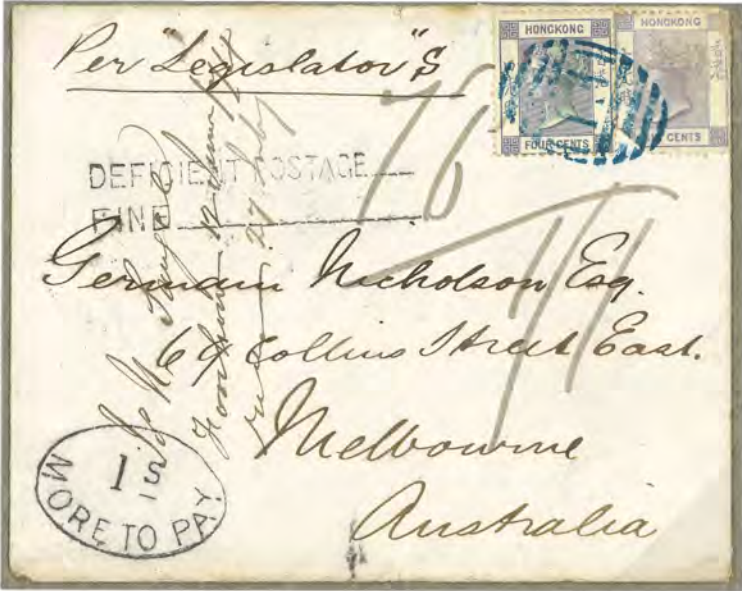 Per "Legislator" S
HONGKONG
FOUR CENTS
HONGKONG
CENTS
DEFICIENT POSTAGE
FINE
Germain Nicholson Esq.
69 Collins Street East.
Melbourne
Australia
1s
MORE TO PAY